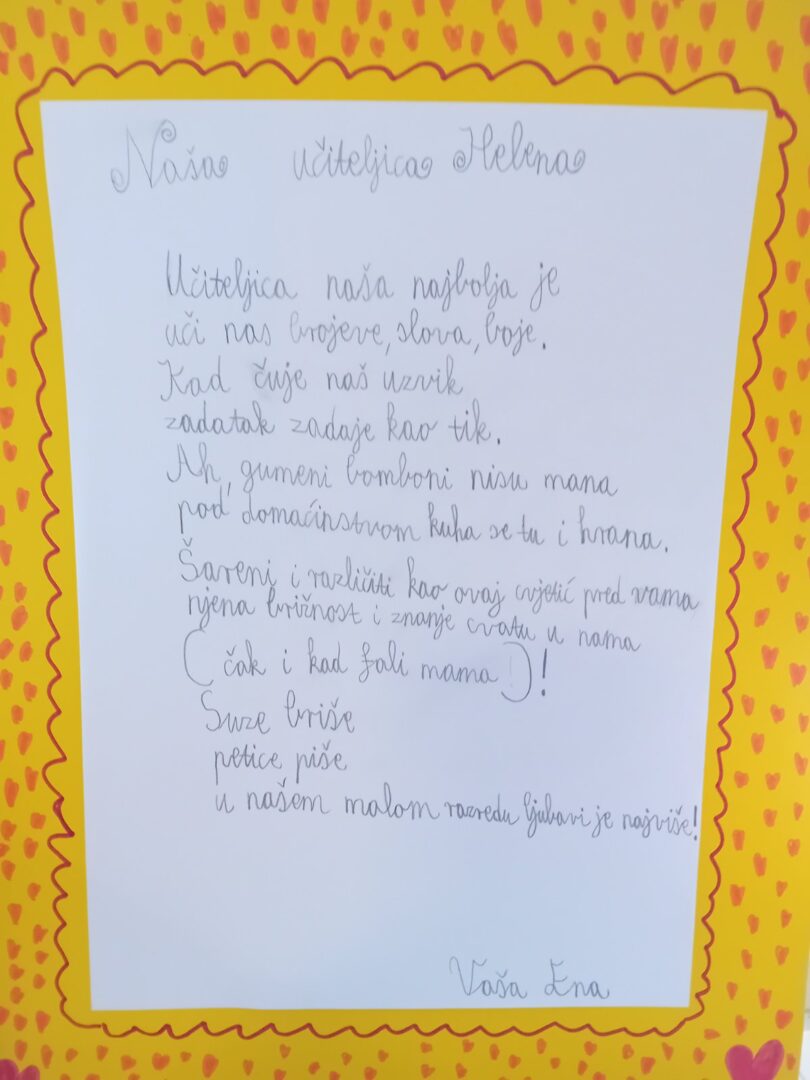 Naša učiteljica Helena
Učiteljica naša najbolja je
uči nas brojeve, slova, boje.
Kad čuje naš uzvik
zadatak zadaje kao tik.
Ah, gumeni bomboni nisu mana
pod domaćinstvom kuha se tu i hrana.
Šareni i različiti kao ovaj cvjetić pred vama
njena brižnost i znanje cvatu u nama
(čak i kad fali mama)!
Suze briše
petice piše
u našem malom razredu ljubavi je najviše!
Vaša Ena